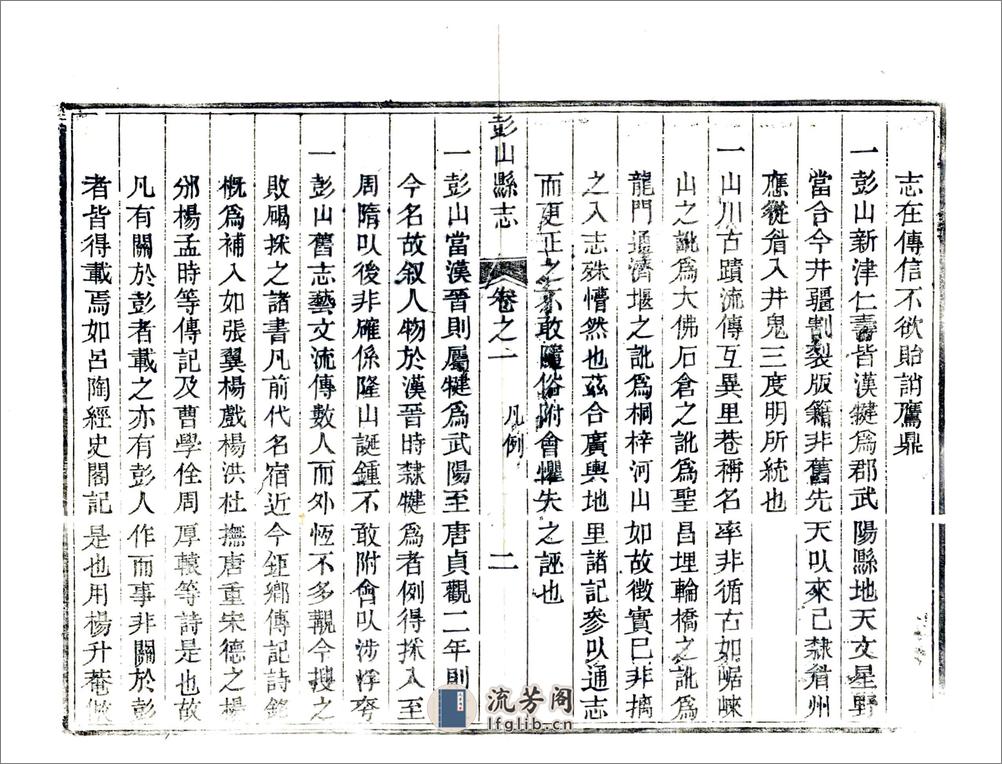 志在傳信不欲貽誚鷹鼎
一彭山新津仁壽皆漢犍爲郡武陽縣地天文星野
當合今井疆割裂版籍非舊先天以來已隸眉州
應從眉入井鬼三度明所統也
一山川古蹟流傳互異里巷稱名率非循古如崌崍
山之訛爲大佛石倉之訛爲聖昌埋輪橋之訛爲
龍門通濟堰之訛爲桐梓河山如故徵實已非摛
之入志殊懵然也茲合廣輿地里諸記參以通志
而更正之不敢隨俗附會懼失之誣也
彭山縣志 卷之一 凡例 二
一彭山當漢晉則屬犍爲武陽至唐貞觀二年則
今名故叙人物於漢晉時隸犍爲者例得採入至
周隋以後非確係隆山誕鍾不敢附會以涉浮夸
一彭山舊志藝文流傳數人而外恆不多覯今搜之
敗碣採之諸書凡前代名宿近今鉅鄉傳記詩銘
概爲補入如張翼楊戲楊洪杜撫唐重宋德之楊
邠楊孟時等傳記及曹學佺周厚轅等詩是也故
凡有關於彭者載之亦有彭人作而事非關於彭
者皆得載焉如呂陶經史閣記是也用楊升菴
流芳阁
lfglib.cn